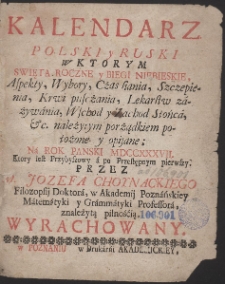 KALENDARZ
POLSKI y RUSKI
W KTORYM
SWIĘTA ROCZNE y BIEGI NIEBIESKIE,
Aspekty, Wybory, Czas siania, Szczepie-
nia, Krwi puszczania, Lekarstw za-
zywania, Wschod y Zachod Słońca,
&c. należytym porządkiem po-
łożone y opisane;
Na ROK PANSKI MDCCXXXVII.
Ktory jest Przybyszowy á po Przestępnym pierwszy;
PRZEZ
JOZEFA CHOYNACKIEGO
Filozofii Doktora, w Akademij Poznańskiey
Matematyki y Grammatyki Professora,
znależytą pilnością
106901
WYRACHOWANY.
w POZNANIU w Drukarni AKADEMICKIEY,